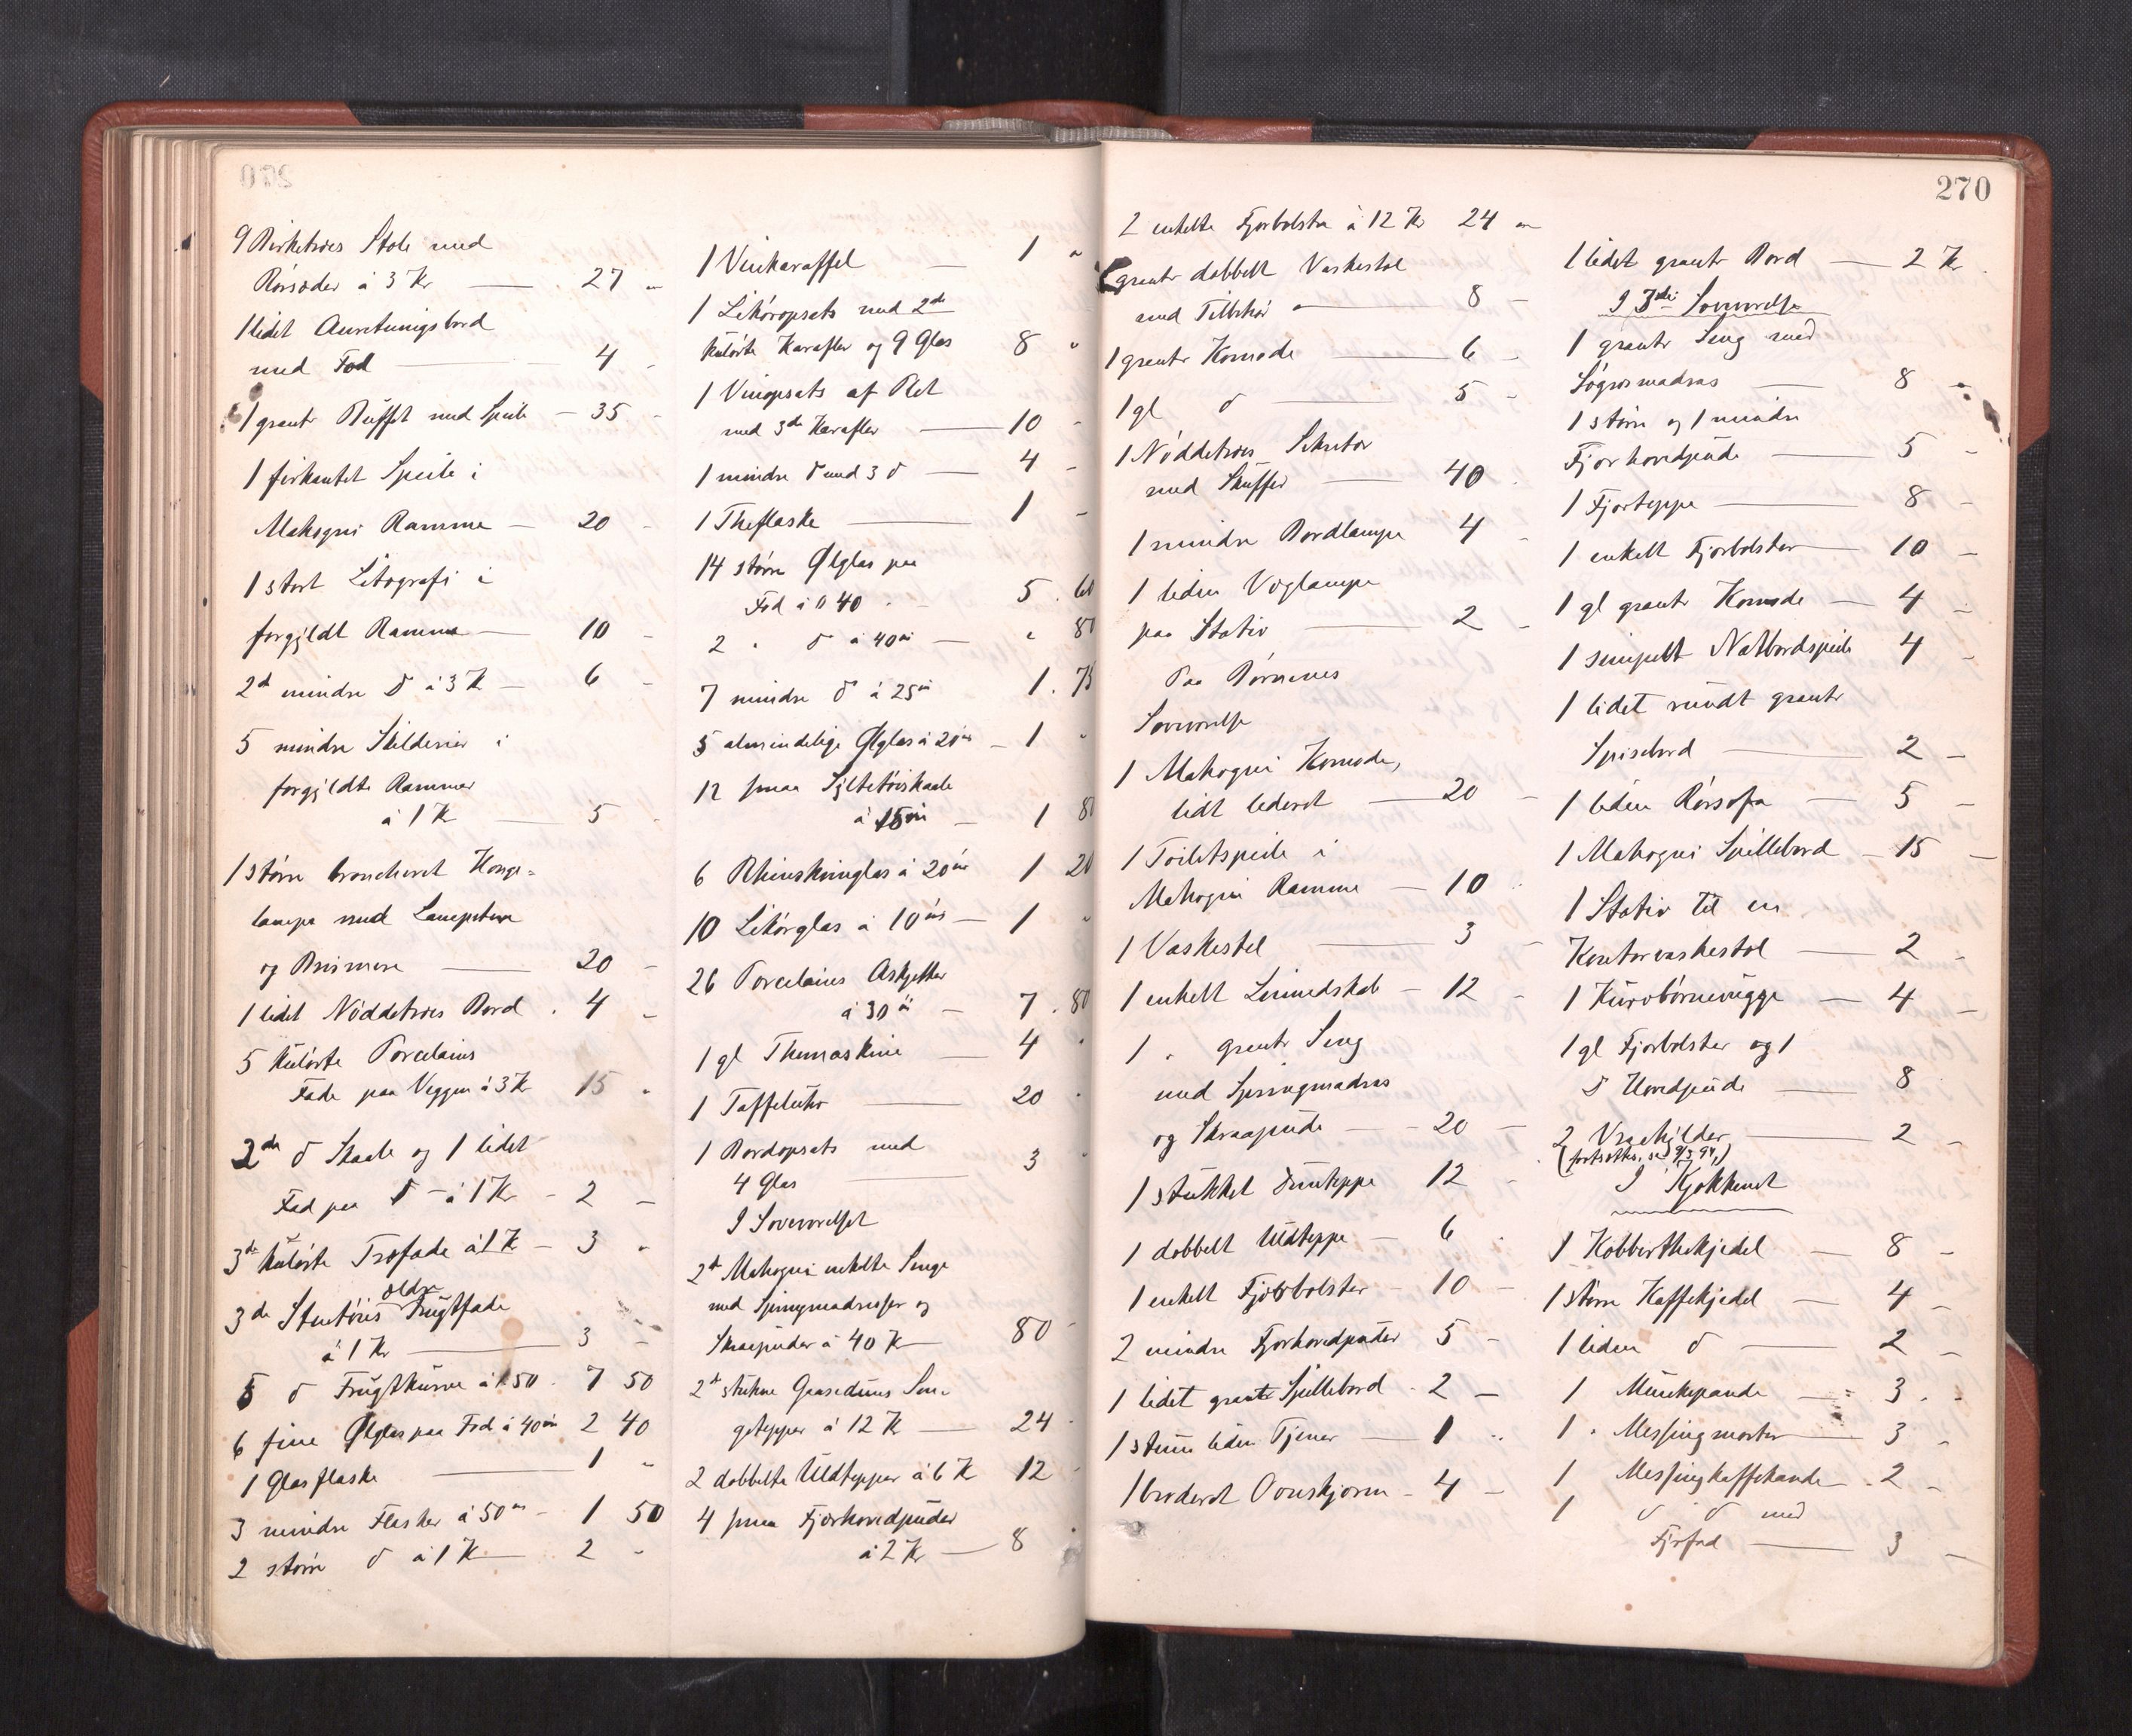 9 Birketræes Stole med
Rørsæder à 3 Kr — 27 "
1 lidet Anretningsbord
med Fod — 4 -
1 grant Buffet med Speile — 35 -
1 firkantet Speile i
Mahogni Ramme — 20 -
1 stort Litografi i
forgyldt Ramme — 10 -
2d mindre do à 3 K — 6 -
5 mindre Skilderier i
forgyldte Rammer
à 1 K — 5 -
1 større broncheret Hænge-
lampe med
og Prismere — 20 -
1 lidet Nøddetræes Bord . 4 -
5 kulørte Porcelains
Fade paa Veggen à 3 K 15 "
2de do Skaale og 1 lidet
Fad paa do — à 1 Kr — 2 -
3de kulørte Træfade à 1 K — 3 "
3de Stentøies ældre Frugtfade
à 1 Kr — 3 -
5 do Frugtkurve à 1.50 . 7 50
6 fine Ølglas paa Fod à 40 øre 2 40
1 Glasflaske — 1 "
3 mindre Flasker à 50 øre — 1 50
2 større do à 1 K — 2 -
1 Vinkaraffel — 1 "
1 Likøropsats med 2de
kulørte Karafler og 9 Glas 8 "
1 Vinopsats af Plet
med 3de Karafler — 10 -
1 mindre do med 3 do — 4 -
1 Theflaske — 1 -
14 større Ølglas paa
Fod à 0 40 . 5 . 60
2 " do à 40 øre — " 80
7 mindre do à 25 øre 1 . 75
5 almindelige Ølglas à 20 øre — 1 "
12 smaa Syltetøiskaale
à 15 øre — 1 80
6 Rhinskvinglas à 20 øre 1 20
10 Likørglas à 10 øre — 1 "
26 Porcelaines Asjetter
à 30 øre — 7 . 80
1 gl Themaskine — 4 "
1 Taffeluhr — 20 "
1 Bordopsats med
4 Glas — 3 "
I Soveværelset
2de Mahogni enkelte Senge
med Springmadrasser og
Skraapuder à 40 K — 80 -
2de stukne Graaeduns Sen-
getepper à 12 K — 24 -
2 dobbelte Uldtepper à 6 K 12 -
4 smaa Fjærhovedpuder
à 2 Kr — 8 "
270
2 enkelte Fjærbolstre à 12 K 24 "
grantr dobbelt Vaskestol
med Tilbehør — 8 -
1 grantr Komode — 6 -
1 gl do — 5 -
1 Nøddetræes Sekretær
med Skuffer — 40 .
1 mindre Bordlampe 4 -
1 liden Væglampe
paa Stativ — 2 -
Paa Børnenes
Soveværelse
1 Mahogni Komode,
lidt lederet — 20 -
1 Toiletspeile i
Mahogni Ramme — 10 "
1 Vaskestel — 3 -
1 enkelt Linnedskab — 12 -
1 " grantr Seng
med Springmadras
og Skraapude — 20 -
1 stukket Dunteppe 12 -
1 dobbelt Uldteppe — 6 .
1 enkelt Fjærbolster — 10 -
2 mindre Fjærhovedpuder 5 -
1 lidet grantr Spillebord . 2 -
1 stum liden Tjener — 1 "
1 broderet Ovnskjærm — 4 -
1 lidet grantr Bord — 2 Kr
I 3die Soveværelse
1 grantr Seng med
Søgræsmadras — 8 -
1 større og 1 mindre
Fjærhovedpude — 5 -
1 Fjærteppe — 8 -
1 enkelt Fjærbolster — 10 -
1 gl grantr Komode — 4 -
1 simpelt Natbordspeile 4 -
1 lidet rundt grantr
Spisebord — 2 -
1 liden Rørsofa — 5 -
1 Mahogni Spillebord — 15 -
1 Stativ til en
Kontorvaskestol — 2 -
1 Kurvbørnevugge — 4 -
1 gl Fjærbolster og 1
do Hovedpude — 8
2 — 2 -
(fortsættes, se 9/3 94,)
I Kjøkkenet
1 Kobberthekjedel — 8 -
1 større Kaffekjedel — 4 -
1 liden do — 2 -
1 Munkepande — 3 . -
1 " Messingmorter — 3 -
1 Messingkaffekande . 2 -
1 do do med
Fyrfad — 3 -